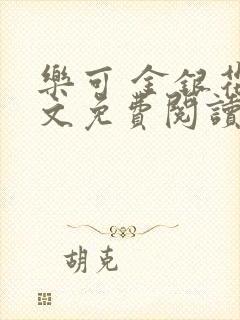 樂可 金銀花
文免費閱讀
胡克